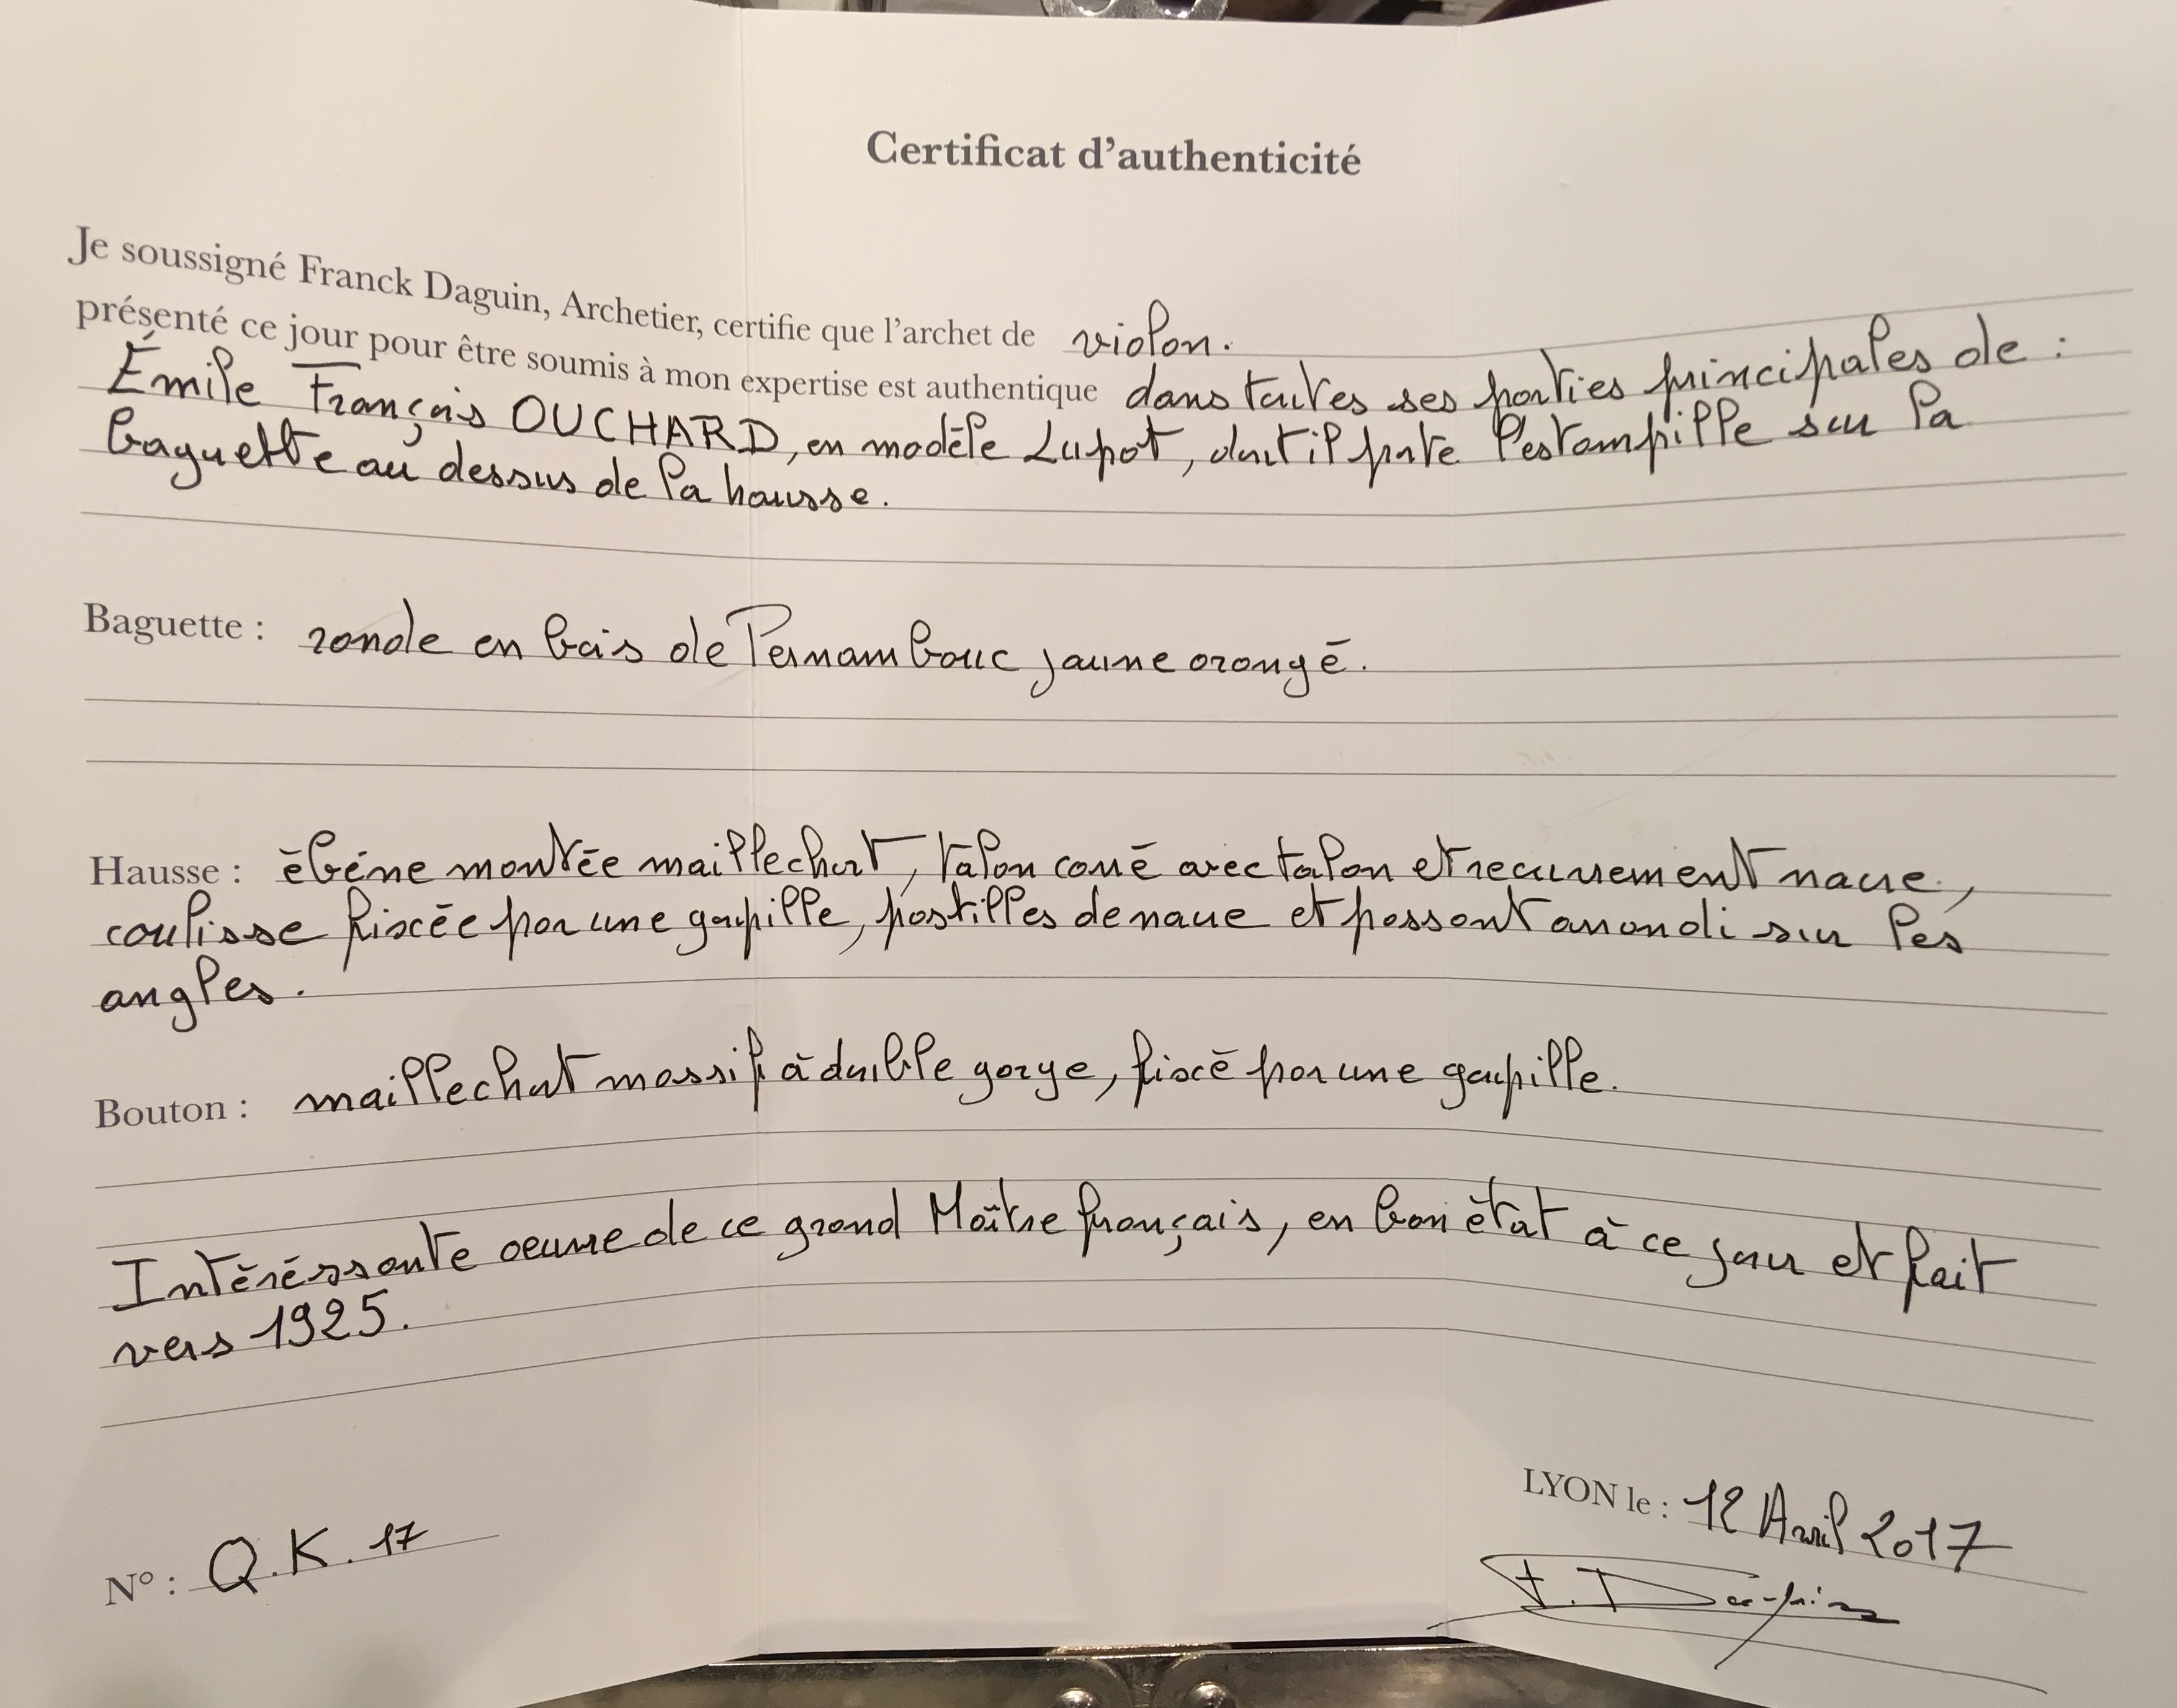 Certificat d'authenticité
Je soussigné Franck Daguin, Archetier, certifie que l'archet de violon.
présenté ce jour pour être soumis à mon expertise est authentique dans toutes ses parties principales de :
Émile François OUCHARD, en modèle Lupot, dont il porte l'estampille sur la
baguette au dessus de la hausse.
Baguette : ronde en bois de Pernambouc jaune orangé.
Hausse : ébéne montée maillechort, talon coué avec talon et recouvrement nacre,
coulisse fixée par une goupille, pastilles de nacre et passant arrondi sur les
angles.
Bouton : maillechort massif à double gorge, fixé par une goupille.
Intéréssante oeuvre de ce grand Maître français, en bon état à ce jour et fait
vers 1925.
LYON le : 12 Avril 2017
N° : Q.K.17
F. Daguin